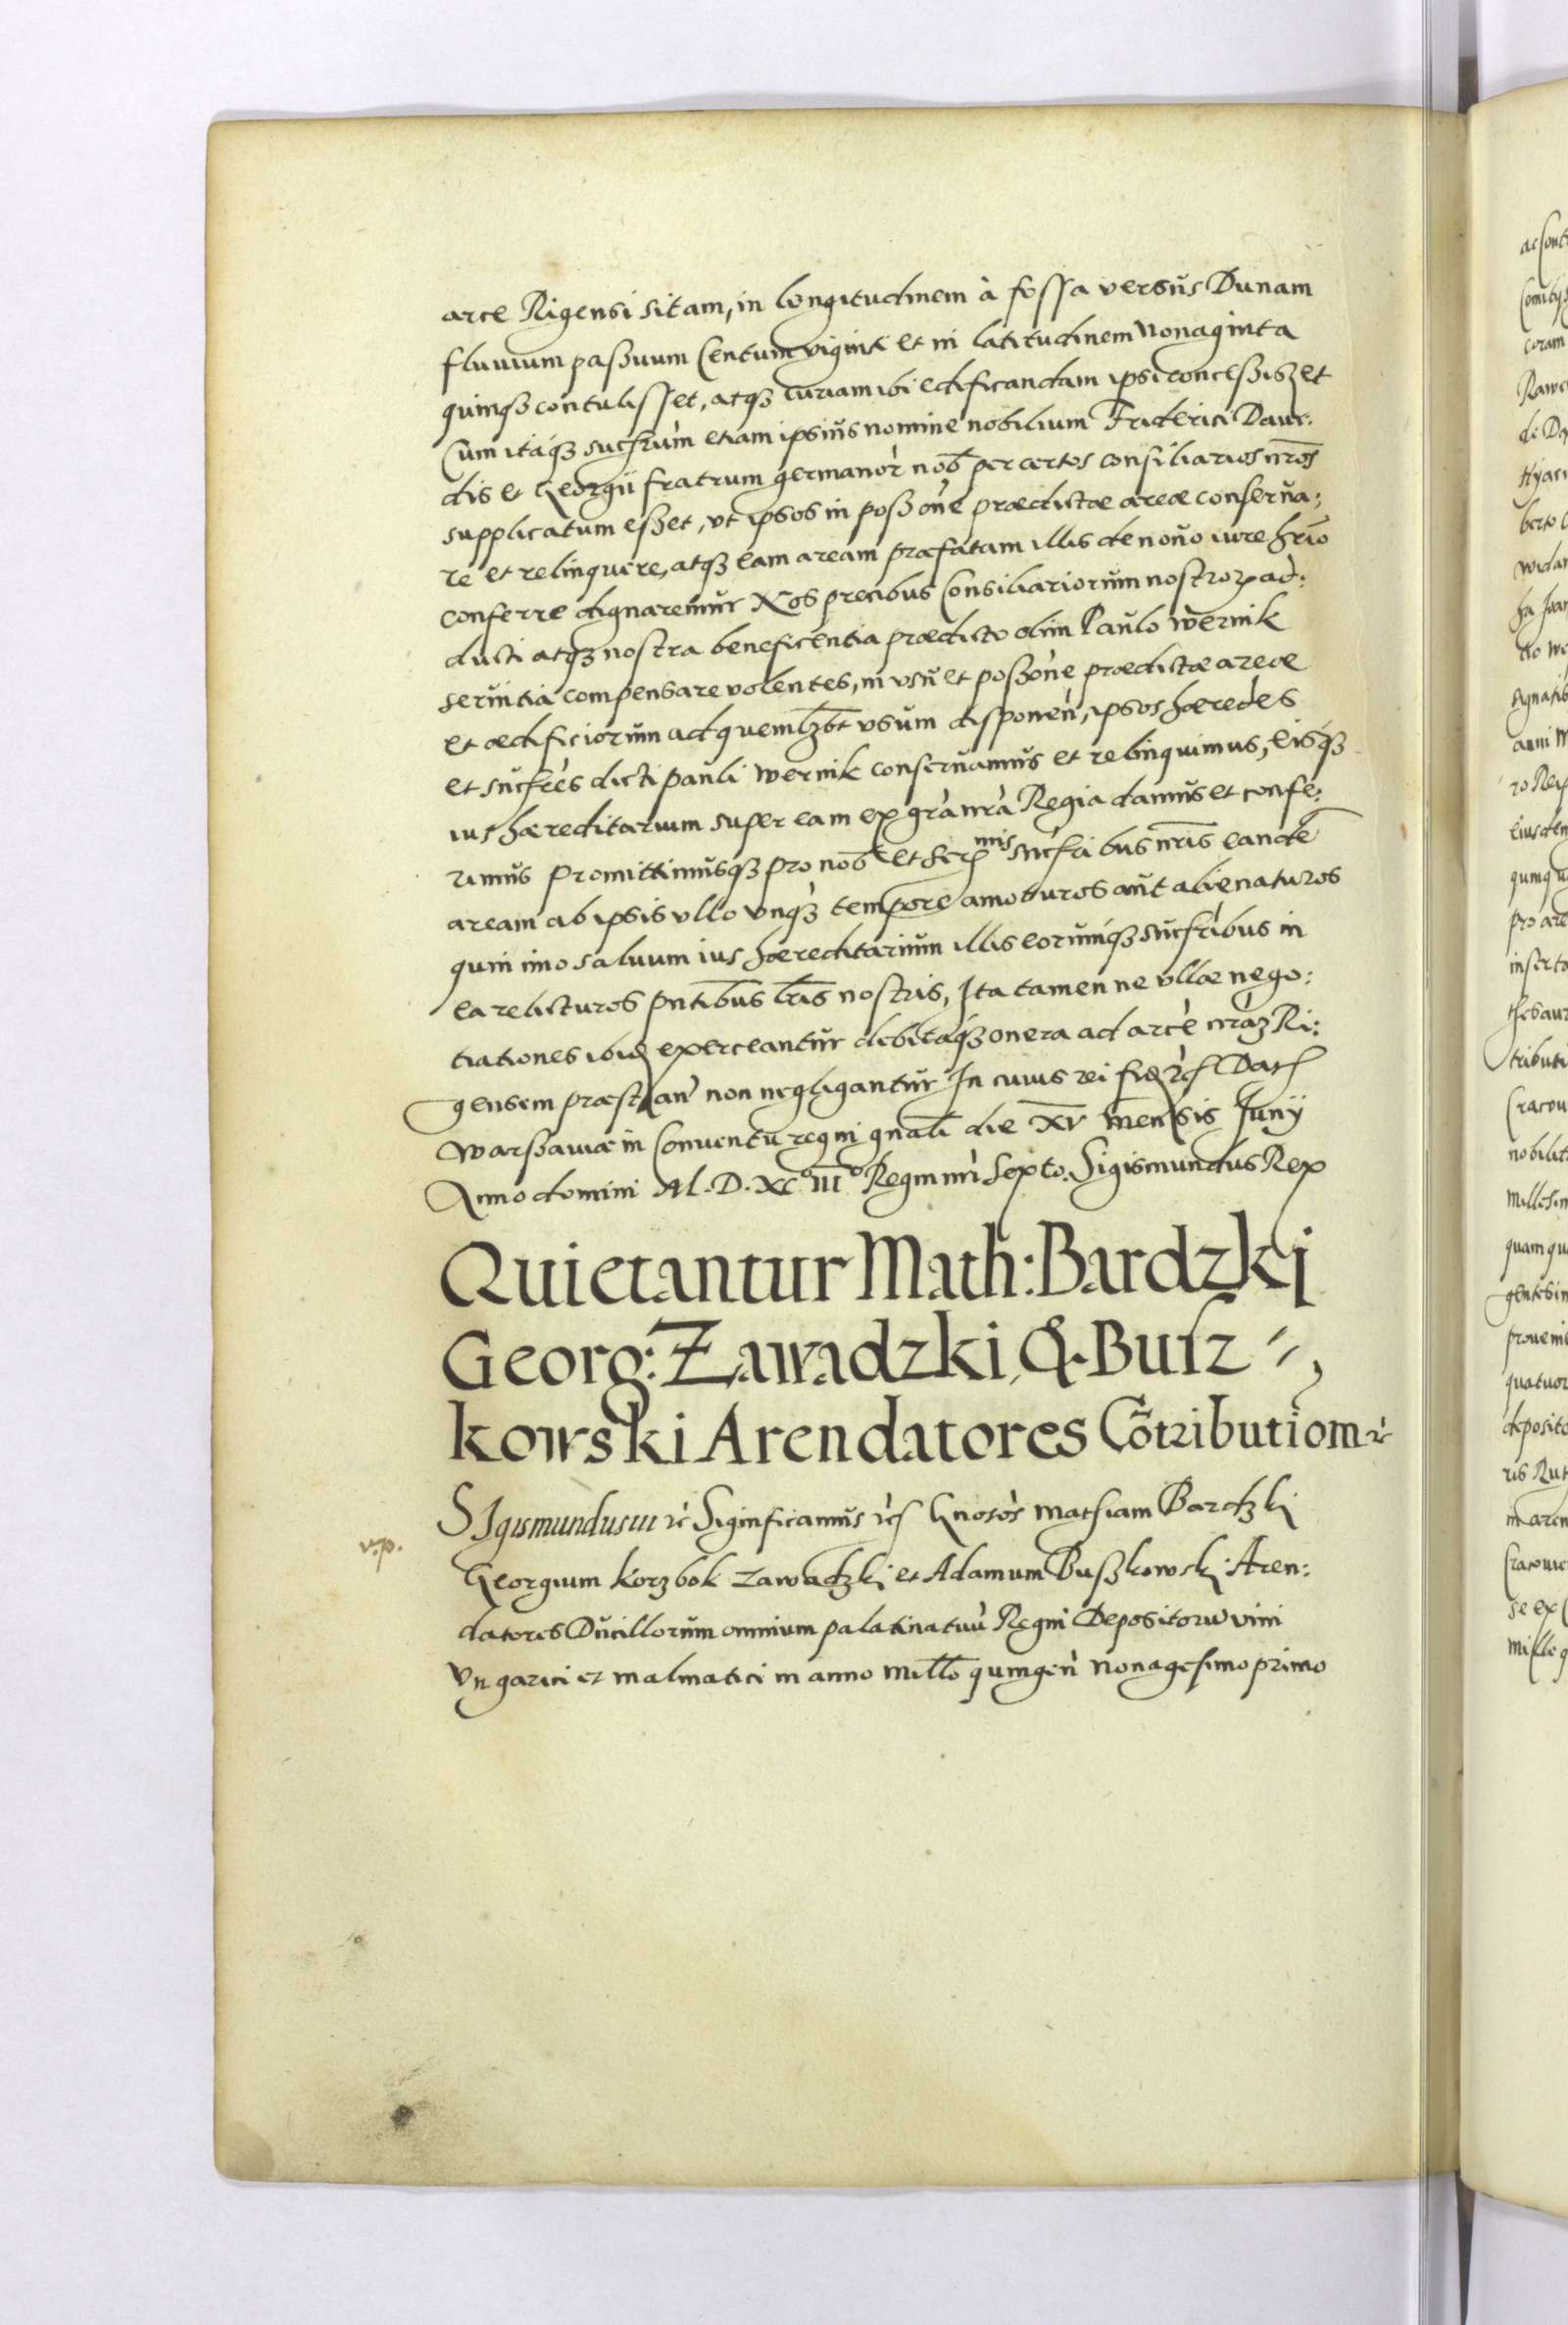 arce Rigensi sitam, in longitudinem à fossa versus Dunam
fluuium paßuum Centum viginti et in latitudinem Nonaginta
quinqꝫ contulisset, atqꝫ curiam ibi edificandam ipsi conceßißet
Cum itaqꝫ sucſsrum etiam ipsius nomine nobilium Friderici Daui:
dis et Georgii fratrum germanor nob per certos consiliarios nros
supplicatum eßet, vt ipsos in poßone prædictæ areæ conserua:
re et relinquere, atqꝫ eam aream præfatam illis de nouo iure hrio
conferre dignaremur Nos precibus Consiliariorum nostroꝝ ad:
ducti atqꝫ nostra beneficentia prædicto olim Paulo wernik
seruitia compensare volentes, in vsu et poßone prædictæ areæ
et ædificiorum ad quemlꝫbt vsum disponen, ipsos hæredes
et sucſres dicti pauli wernik conseruamus et relinquimus, eisqꝫ
ius hæreditarium super eam ex gra nra Regia damus et confe:
rimus Promittimusqꝫ pro nob et Ser mis sucſribus nris eande
aream ab ipsis vllo vnqꝫ tempore amoturos aut alienaturos
quin imo saluum ius hæreditarium illis eorumqꝫ sucſribus in
ea relicturos pntibus lris nostris, Ita tamen ne vllæ nego:
tiationes ibid exerceantur debitaqꝫ onera ad arce nraꝫ Ri:
gensem præstan non negligantur In cuius rei fid rc Dat
warßauiæ in Conuentu regni gnali die XV Mensis Junij
Anno domini M.D.XCº IIIº Regni nri Sexto. Sigismundus Rex
Quietantur Math: Bardzkj
Georg: Zawadzki, & Busz
kowski Arendatores Cõtributiom rc
v.p.
SIgismundus III rc Significamus rc Gnosos Mathiam Bardzkj
Georgium Korzbok Zawadzkj et Adamum Bußkowskj Aren:
datores Ducillorum omnium palatinatuu Regni Depositoru vini
Vngarici et malmatici in anno Millo quingen Nonagesimo primo